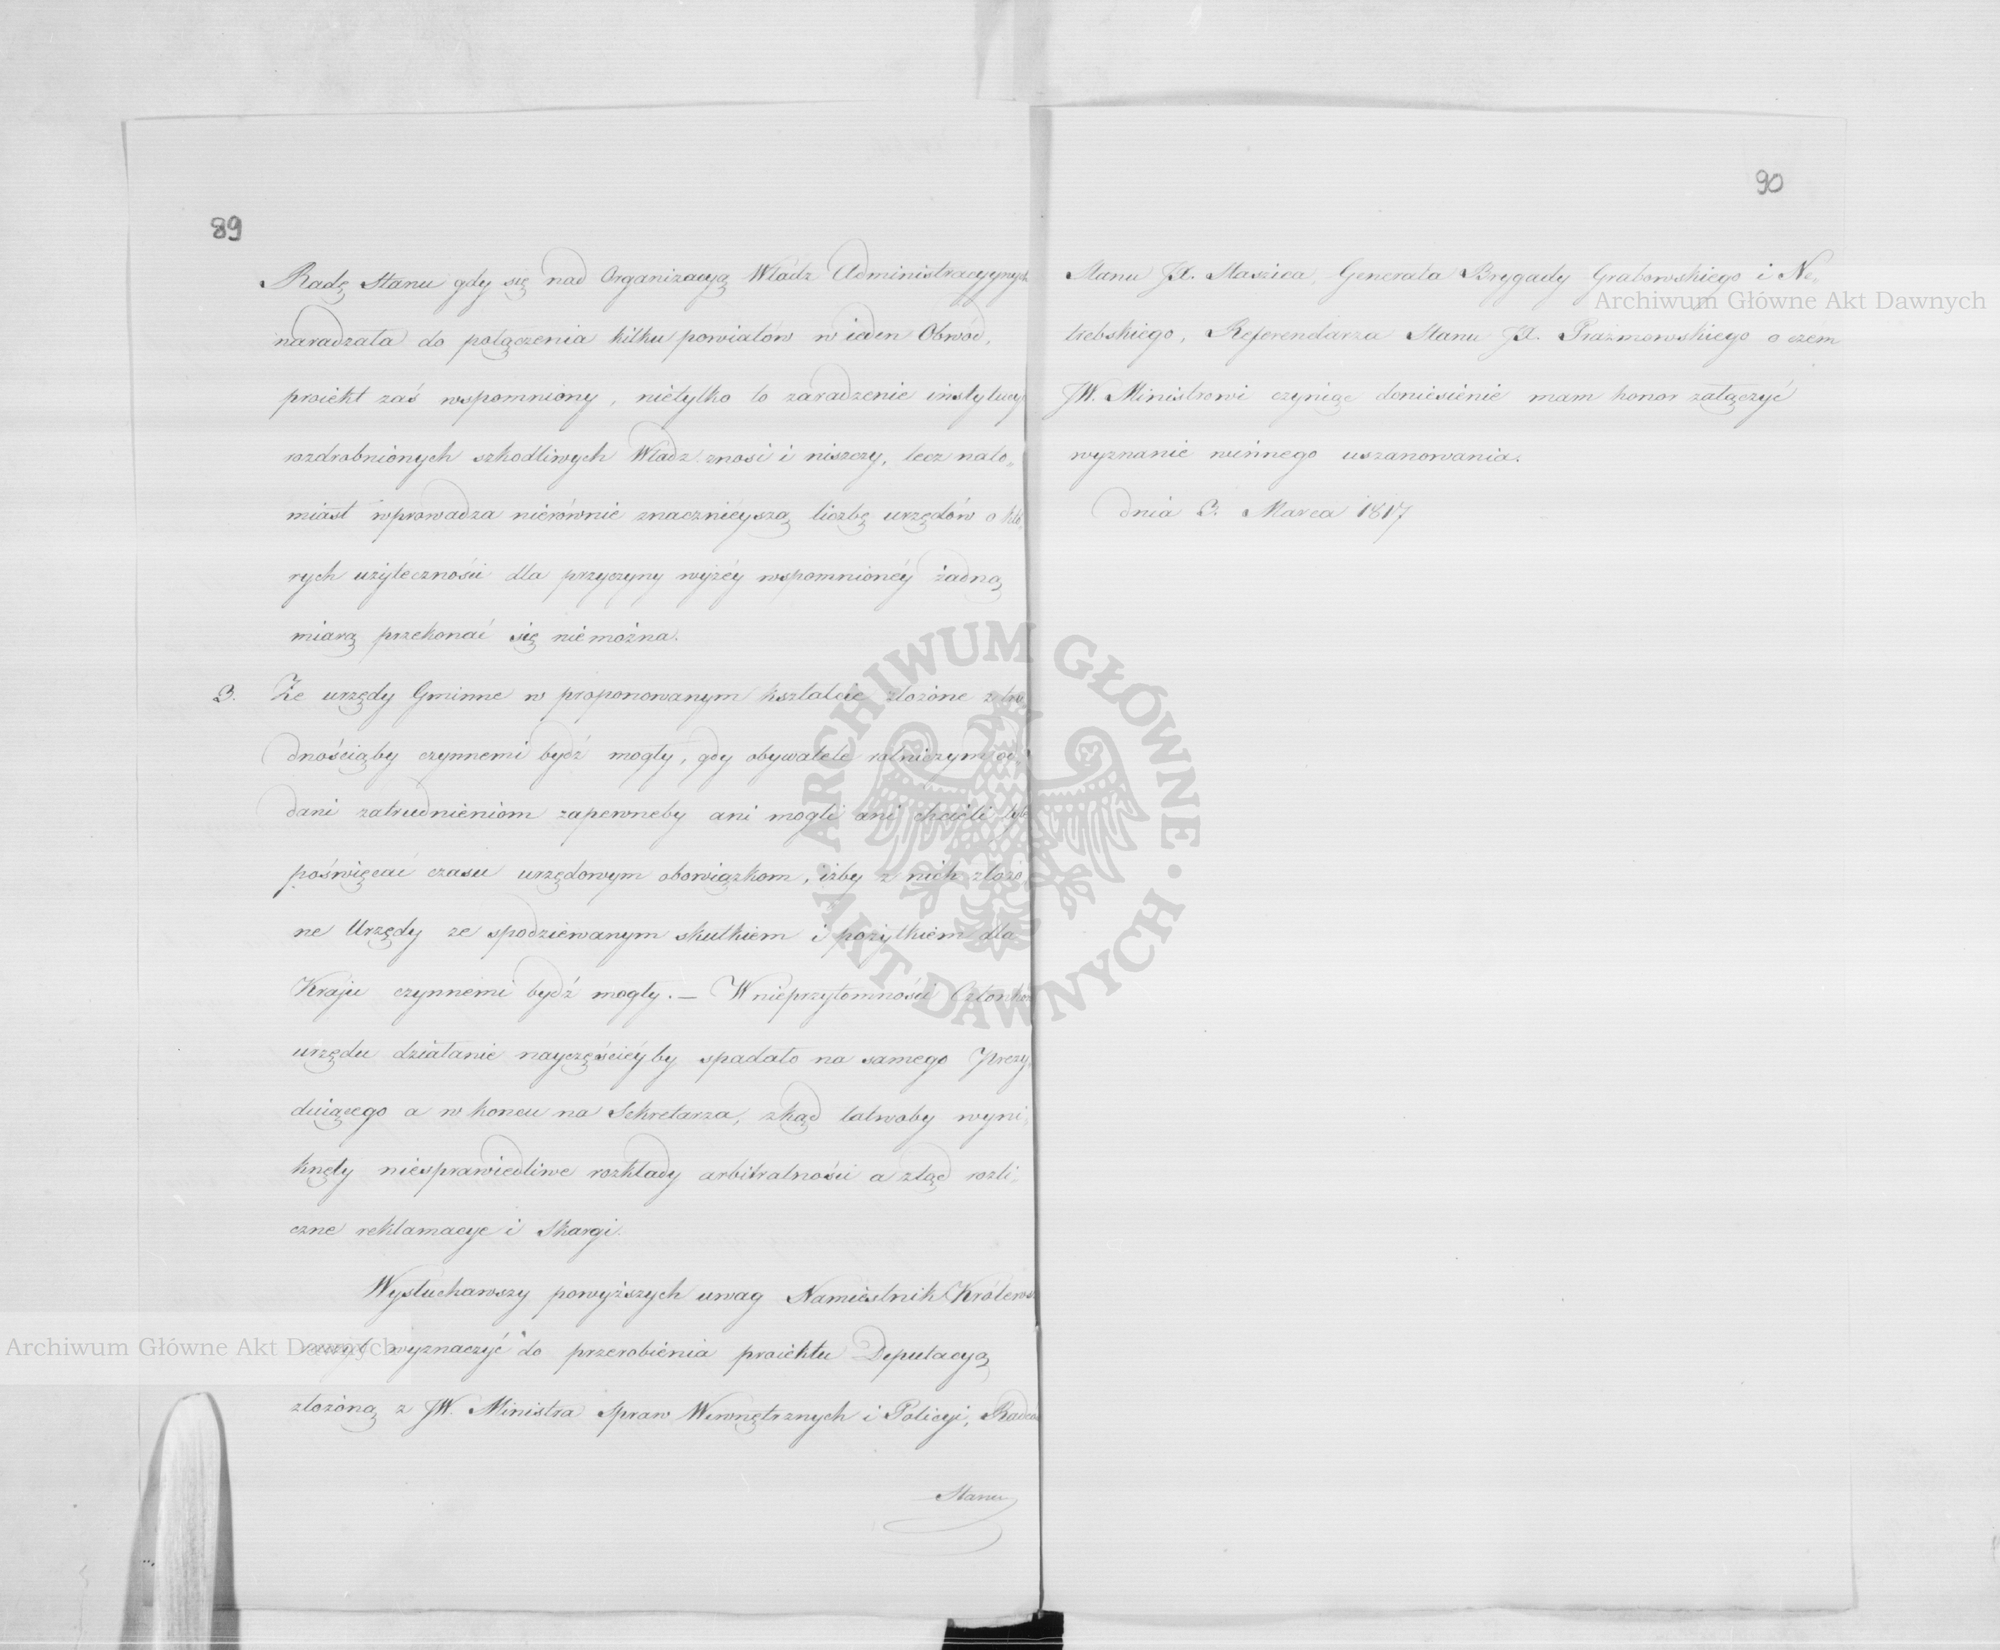 89
Radę Stanu gdy się nad Organizacyą Władz Administracyynych
naradzała do połączenia kilku powiatów w ieden Obwód,
proiekt zaś wspomniony, nietylko to zaradzenie instytucyi
rozdrobnionych szkodliwych Władz znosi i niszczy, lecz nato„
miast wprowadza nierównie znacznieyszą liczbę urzędów o któ„
rych użyteczności dla przyczyny wyżéy wspomnionéy żadną
miarą przekonać się niemożna.
3. Że urzędy Gminne w proponowanym kształcie złożone z tru„
dnościąby czynnemi bydź mogły, gdy obywatele rolniczym od„
dani zatrudnieniom zapewneby ani mogli ani chcieli tyle
poświęcać czasu urzędowym obowiązkom, iżby z nich złożo„
ne Urzędy ze spodziewanym skutkiem i pożytkiem dla
Kraju czynnemi bydź mogły. — W nieprzytomności Członków
urzędu działanie nayczęściéyby spadało na samego Prezy„
duiącego a w końcu na Sekretarza, zkąd łatwoby wyni„
knęły niesprawiedliwe rozkłady arbitralności a ztąd rozli„
czne reklamacye i skargi.
Wysłuchawszy powyższych uwag Namiestnik Królews
wyznaczyć do przerobienia proiektu Deputacyą
złożoną z JW. Ministra Spraw Wewnętrznych i Policyi, Radców
Stanu
90
Stanu JX. Staszica, Generała Brygady Grabowskiego i Ne„
trebskiego, Referendarza Stanu JX. Prażmowskiego o czem
JW. Ministrowi czyniąc doniesienie mam honor załączyć
wyznanie winnego uszanowania.
dnia 3. Marca 1817
Archiwum Główne Akt Dawnych
Archiwum Główne Akt Dawnych
ARCHIWUM GŁÓWNE · AKT DAWNYCH ·